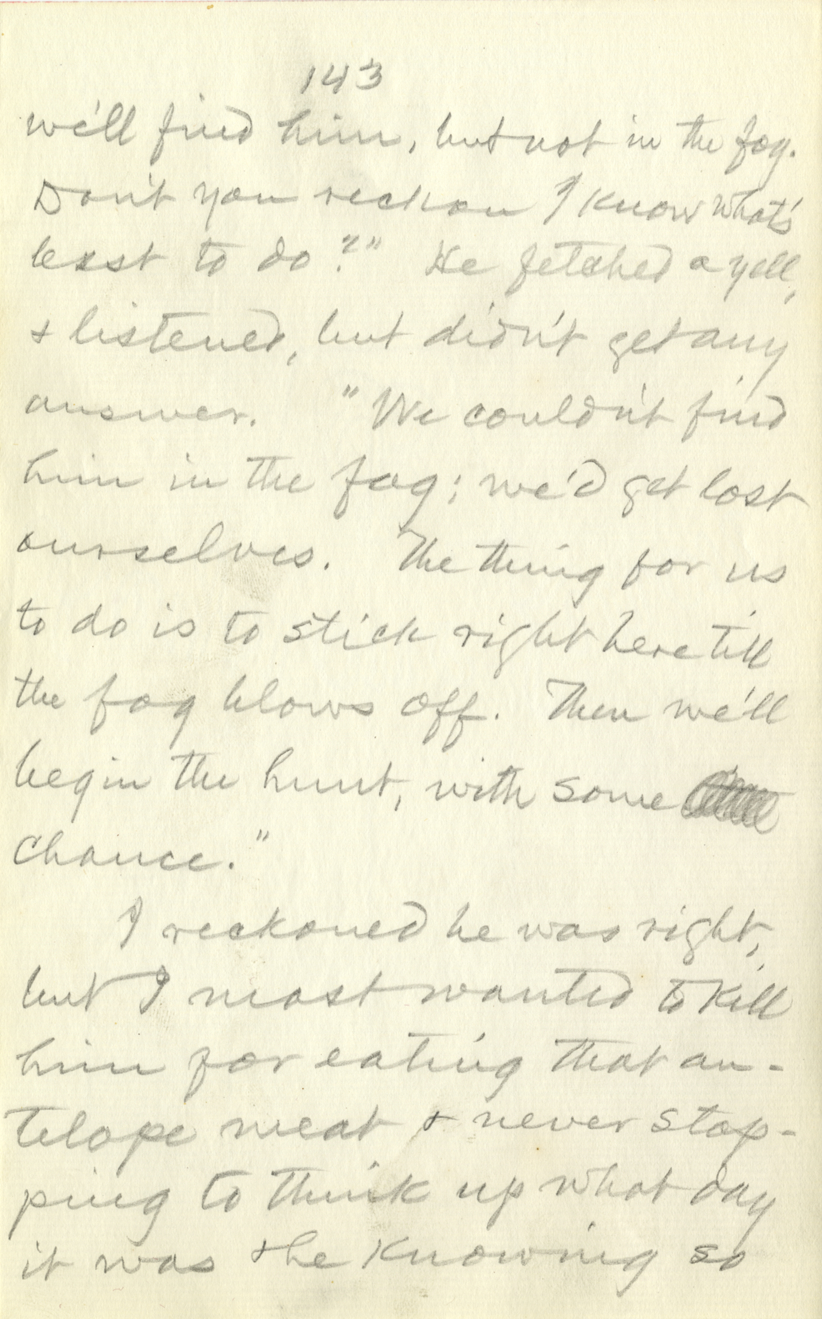 143
we'll find him, but not in the fog.
Don't you reckon I know what's
best to do?" He fetched a yell,
& listened, but didn't get any
answer. "We couldn't find
him in the fog; we'd get lost
ourselves. The thing for us
to do is to stick right here till
the fog blows off. Then we'll
begin the hunt, with some
chance."
I reckoned he was right,
but I most wanted to kill
him for eating that an-
telope meat & never stop-
ping to think up what day
it was & he knowing so